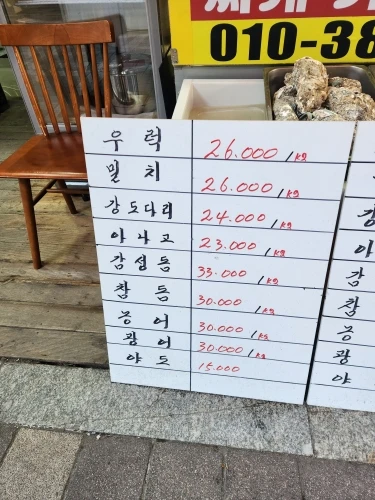 010-38
우럭 26.000/kg
밀치 26.000/kg
강도다리 24.000/kg
아나고 23.000/kg
감성돔 33.000/kg
참돔 30.000/kg
긍어 30.000/kg
광어 30.000/kg
야도 15.000
강
아
감
참
긍
광
야